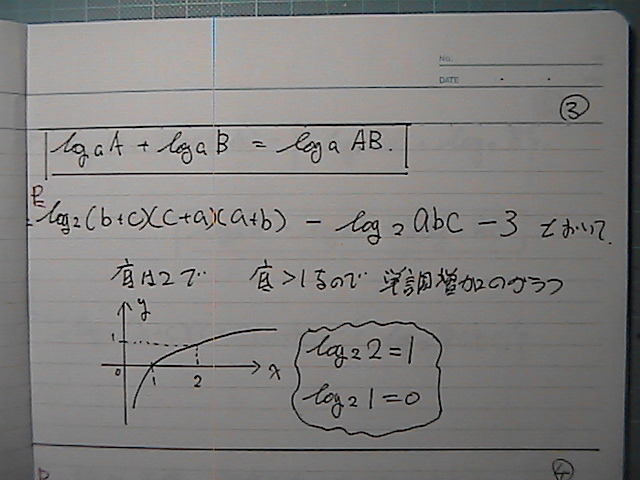 No.
DATE ・ ・
③
log a A + log a B = log a AB.
P = log₂(b+c)(c+a)(a+b) - log₂ abc - 3 とおいて.
底は2で 底>1なので 単調増加のグラフ
y
1
0 1 2 x
log₂ 2 = 1
log₂ 1 = 0
④